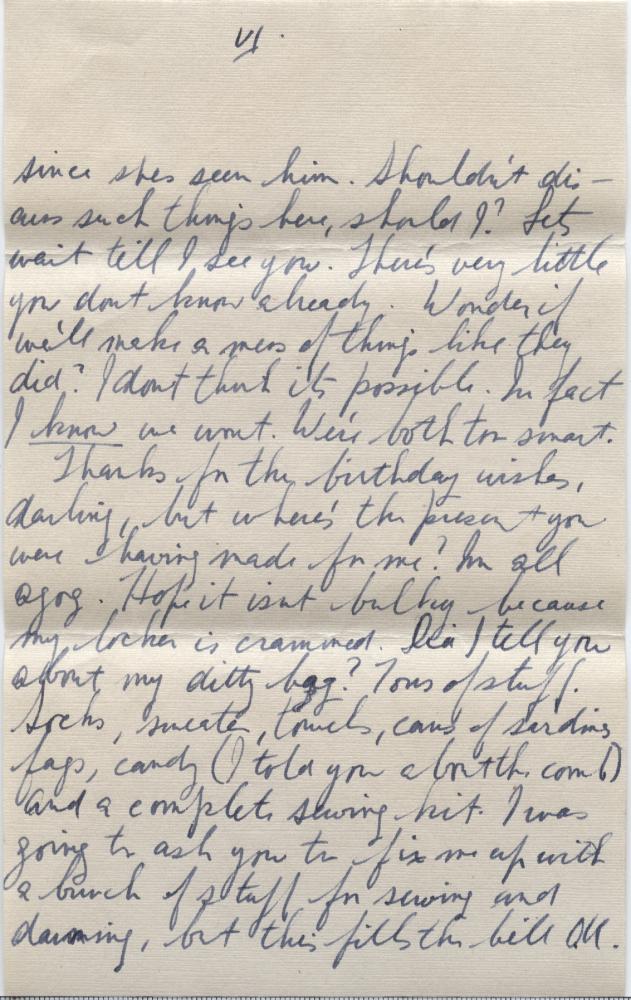 VI.
since shes seen him. Shouldn't dis-
cuss such things here, should I? Lets
wait till I see you. There's very little
you dont know already. Wonder if
we'll make a mess of things like they
did? I dont think its possible. In fact
I know we wont. We're both too smart.
Thanks for the birthday wishes,
darling, but where's the present you
were having made for me? Im all
agog. Hope it isnt bulky because
my locker is crammed. Did I tell you
about my ditty bag? Tons of stuff.
Socks, sweater, towels, cans of sardines
fags, candy (I told you about the comb)
and a complete sewing kit. I was
going to ask you to fix me up with
a bunch of stuff for sewing and
darning, but this fills the bill OK.